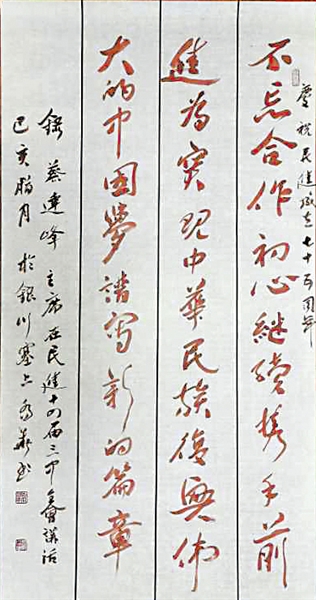 慶祝民進成立七十五周年
不忘合作初心繼續携手前
進為實現中華民族復興偉
大的中國夢譜寫新的篇章
錄蔡達峰主席在民進十四届三中全會講話
己亥腊月於銀川塞上